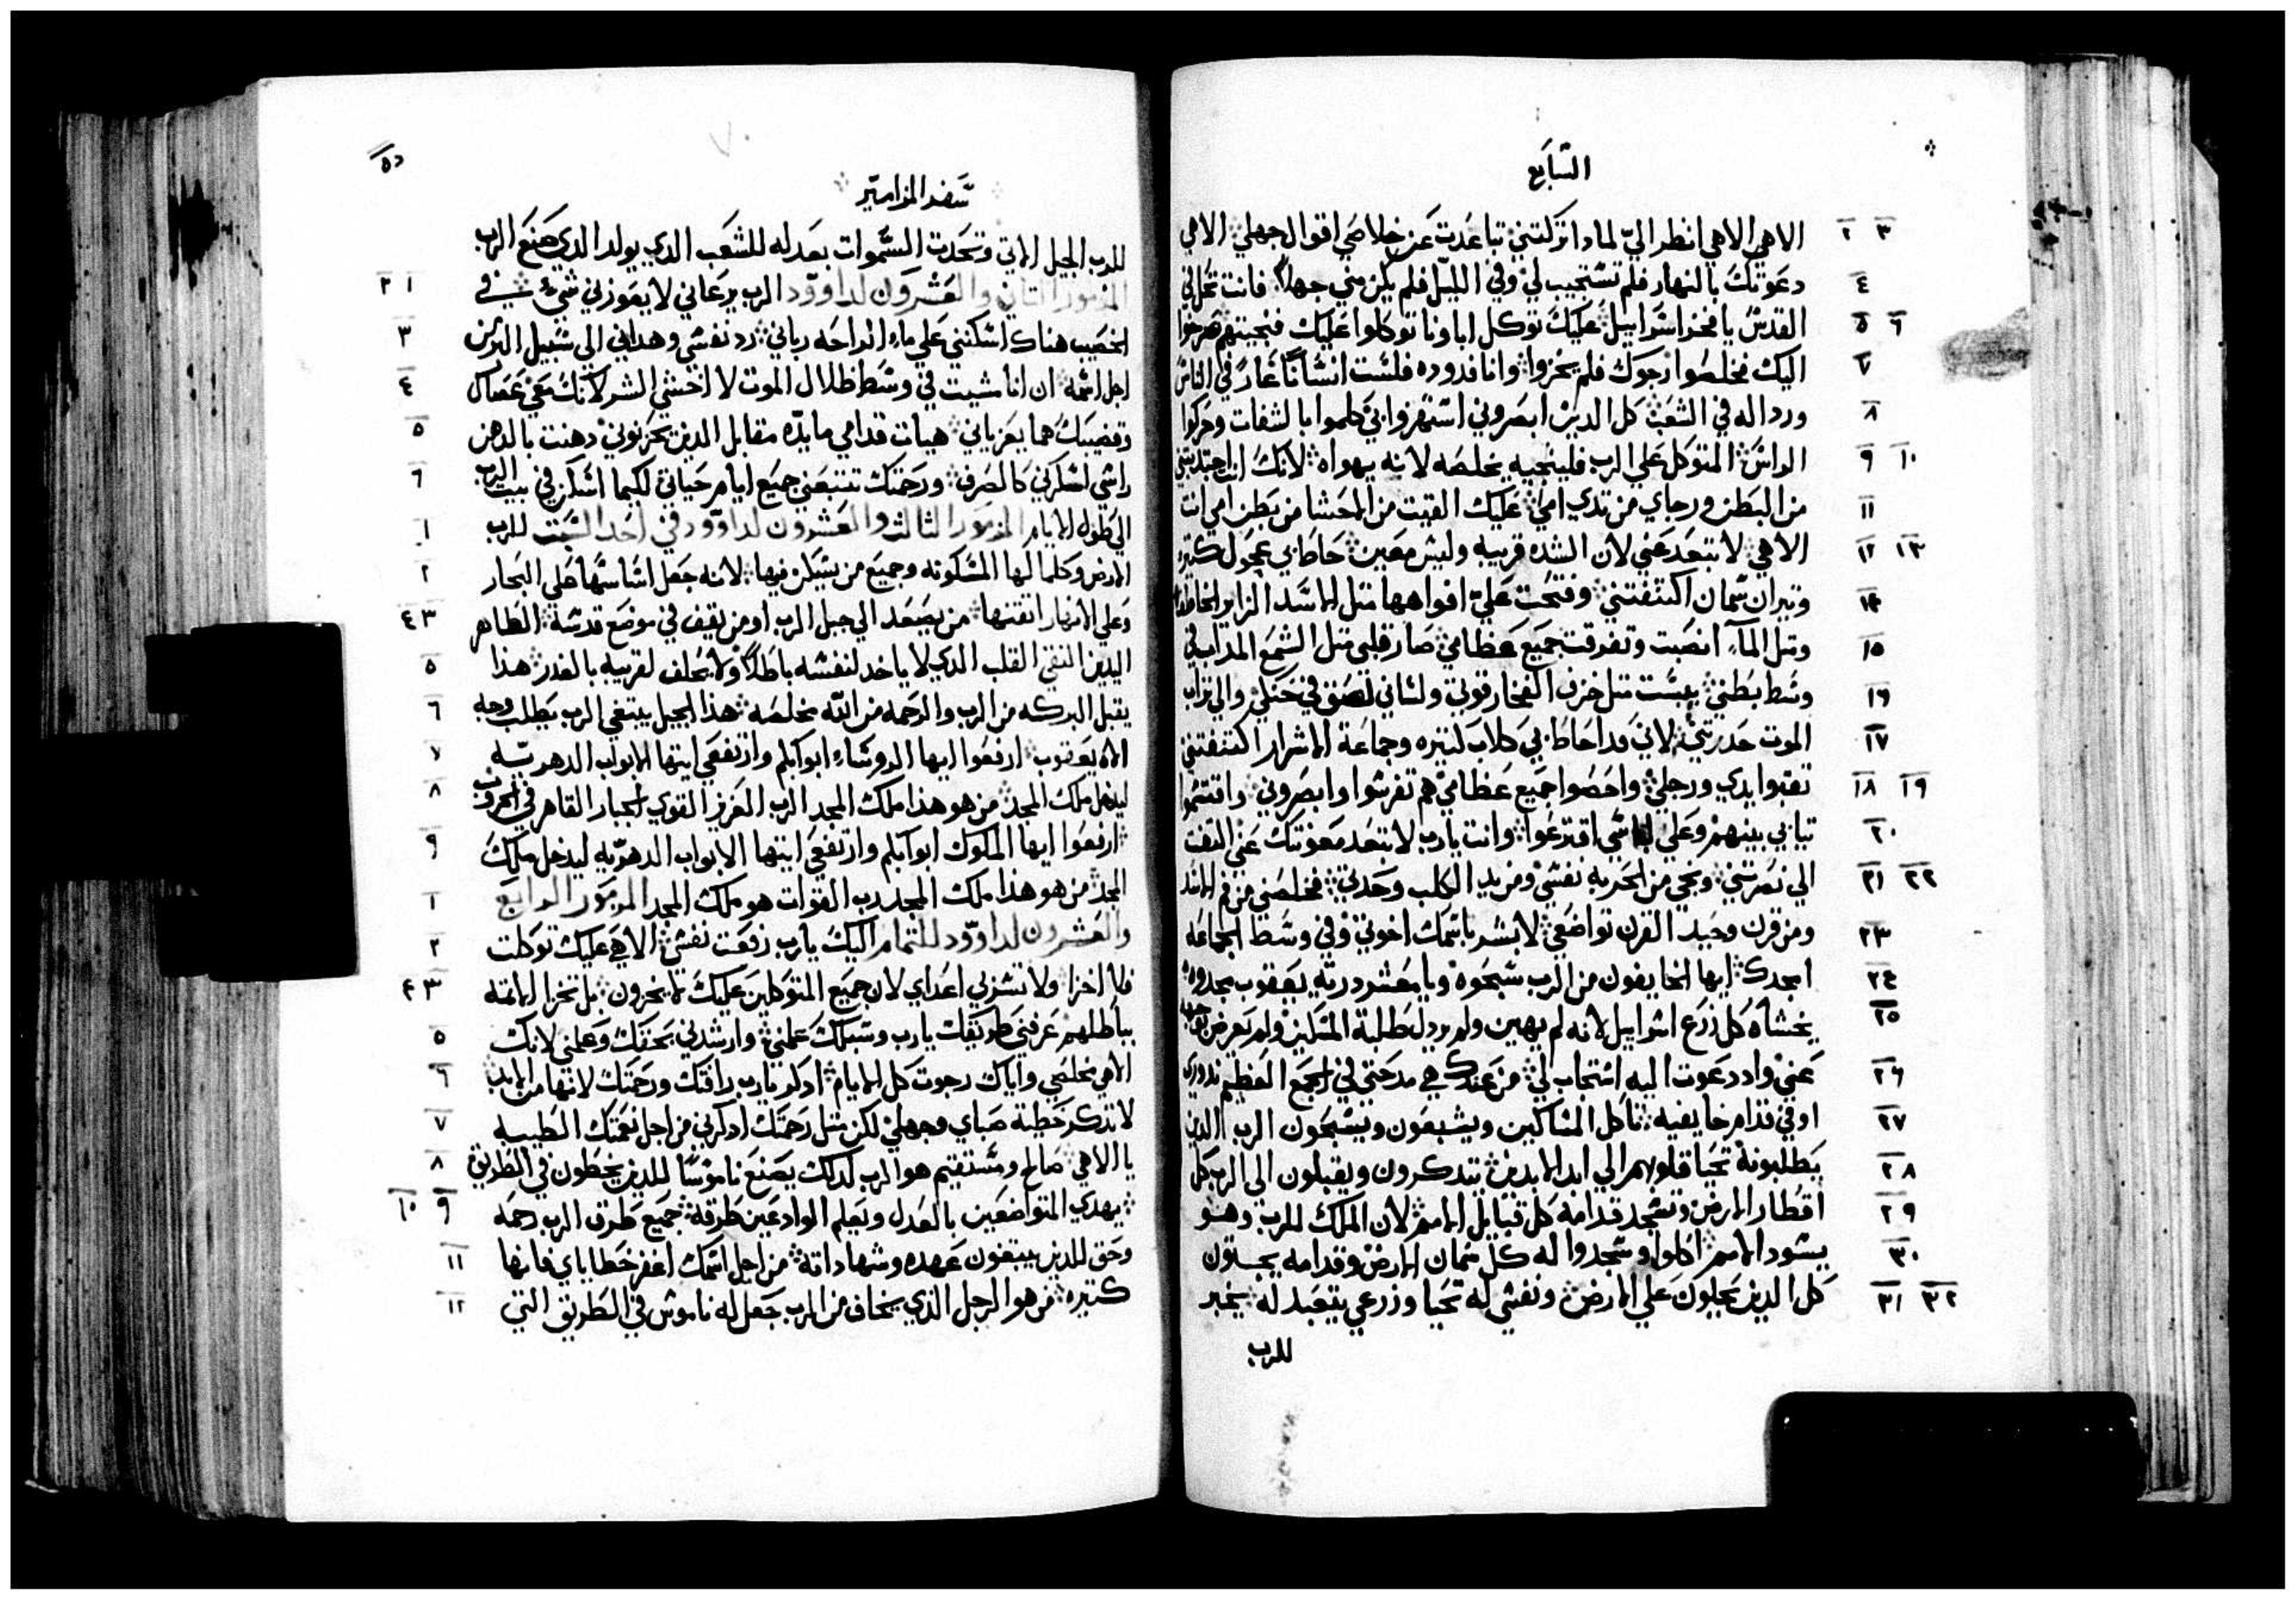 السابع
٣ ٢ الاهي الاهي انظر اليّ لمادا تركتني تباعدت عن خلاصي اقوال جهلي الاهي
٤ دعوتك بالنهار فلم تستجيب لي وفي الليل فلم يكن مني جهلا فانت تحل في
٦ ٥ القدس يا فخر اسراييل عليك توكل اباونا توكلوا عليك فنجيتهم صرخوا
٧ اليك فخلصوا رجوك فلم يخزوا وانا فدوده فلست انسانا عار في الناس
٨ وردالة في الشعب كل الدين ابصروني استهزوا بي كلموا بالشفات وحركوا
١٠ ٩ الراس المتوكل علي الرب فلينجيه يخلصه لانه يهواه لانك انت اجتدبتني
١١ من البطن ورجاي من تدي امي عليك القيت من الحشا من بطن امي انت
١٣ ١٢ الاهي لا تبتعد عني لان الشده قريبه وليس معين حاط بي عجول كتيره
١٤ وتيران سمان اكتنفتني وفتحت علي افواهها متل الاسد الزاير الخاطف
١٥ ومتل المآء انصبت وتفرقت جميع عظامي صار قلبي متل الشمع المداب في
١٦ وسط بطني يبست متل خزف الفخار قوتي ولساني لصق في حنكي والي تراب
١٧ الموت حدرتني لاني قد احاط بي كلاب كتيره وجماعة الاشرار اكتنفتني
١٩ ١٨ تقبوا يدي ورجلي واحصوا جميع عظامي هم تفرسوا وابصروني واقتسموا
٢٠ تيابي بينهم وعلي لباسي اقترعوا وانت يارب لا تبتعد معونتك عني التفت
٢٢ ٢١ الي نصرتني ونجي من الحربه نفسي ومن يد الكلب وحدتي فخلصني من فم الاسد
٢٣ ومن قرن وحيد القرن تواضعي لابشر باسمك اخوتي وفي وسط الجماعه
٢٤ امجدك ايها الخايفون من الرب سبحوه ويا معشر درية يعقوب مجدوه
٢٥ يخشاه كل زرع اسراييل لانه لم يهين ولم يردل طلبة المسكين ولم يعرض وجهه
٢٦ عني واد دعوت اليه استجاب لي من عندك هي مدحتي في الجمع العظيم ندوري
٢٧ اوفي قدام خايفيه تاكل المساكين ويشبعون ويسبحون الرب الدين
٢٨ يطلبونه تحيا قلوبهم الي ابد الابدين تتدكرون ويقبلون الي الرب كل
٢٩ اقطار الارض وتسجد قدامه كل قبايل الامم لان الملك للرب وهو
٣٠ يسود الامم اكلوا وسجدوا له كل سمان الارض وقدامه يجسون
٣٢ ٣١ كل الدين يحلون علي الارض ونفسي له تحيا وزرعي يتعبد له يخبر
للرب
٧٠
سفر المزامير
للرب الجيل الاتي وتحدت السموات بعدله للشعب الدي يولد الدي صنع الرب
المزمور التاني والعشرون لداوود الرب يرعاني لا يعوزني شي في ١ ٢
الخصيب هناك اسكنني علي ماء الراحه رباني رد نفسي وهداني الي سبيل البر من ٣
اجل اسمه ان انا مشيت في وسط ظلال الموت لا اخشي الشر لانك معي عصاك ٤
وقضيبك هما يعزياني هيات قدامي مايده مقابل الدين يحزنوني دهنت بالدهن ٥
راسي اسكرني كالصرف ورحمتك تتبعني جميع ايام حياتي لكيما اسكن في بيت الرب ٦
الي طول الايام المزمور الثالث والعشرون لداوود في احد السبت للرب ١
الارض وكلما لها المسكونه وجميع من يسكن فيها لانه جعل اساسها علي البحار ٢
وعلي الانهار اتقنها من يصعد الي جبل الرب او من يقيف في موضع قدسه الطاهر ٣ ٤
اليدين النقي القلب الدي لا ياخد لنفسه باطلا ولا يحلف لقريبه بالغدر هذا ٥
يقبل البركه من الرب والرحمه من الله مخلصه هذا الجيل يبتغي الرب يطلب وجه ٦
الاه يعقوب ارفعوا ايها الروساء ابوابكم وارتفعي ايتها الابواب الدهريه ٧
ليدخل ملك المجد من هو هذا ملك المجد الرب العزيز القوي الجبار القاهر في الحروب ٨
ارفعوا ايها الملوك ابوابكم وارتفعي ايتها الابواب الدهريه ليدخل ملك ٩
المجد من هو هذا ملك المجد رب القوات هو ملك المجد المزمور الرابع ١
والعشرون لداوود للتمام اليك يارب رفعت نفسي الاهي عليك توكلت ٢
فلا اخزا ولا تشر بي اعداي لان جميع المتوكلين عليك لا يخزون بل تخزا الاتمه ٣ ٤
بباطلهم عرفني طريقك يارب وسبلك علمني وارشدني بحقك وعلمني لانك ٥
الاهي مخلصي واياك رجوت كل الايام ادكر يارب رافتك ورحمتك لانها من الابد ٦
لا تدكر خطية صباي وجهلي لكن متل رحمتك ادكرني من اجل نعمتك الطيبه ٧
يا الاهي صالح ومستقيم هو الرب لدلك يصنع ناموسا للدين يخطون في الطريق ٨
يهدي المتواضعين بالعدل ويعلم الوادعين طرقه جميع طرق الرب رحمه ٩ ١٠
وحق للدين يبتغون عهده وشهاداته من اجل اسمك اغفر خطاياي فانها ١١
كتيره من هو الرجل الذي يخاف من الرب جعل له ناموس في الطريق التي ١٢